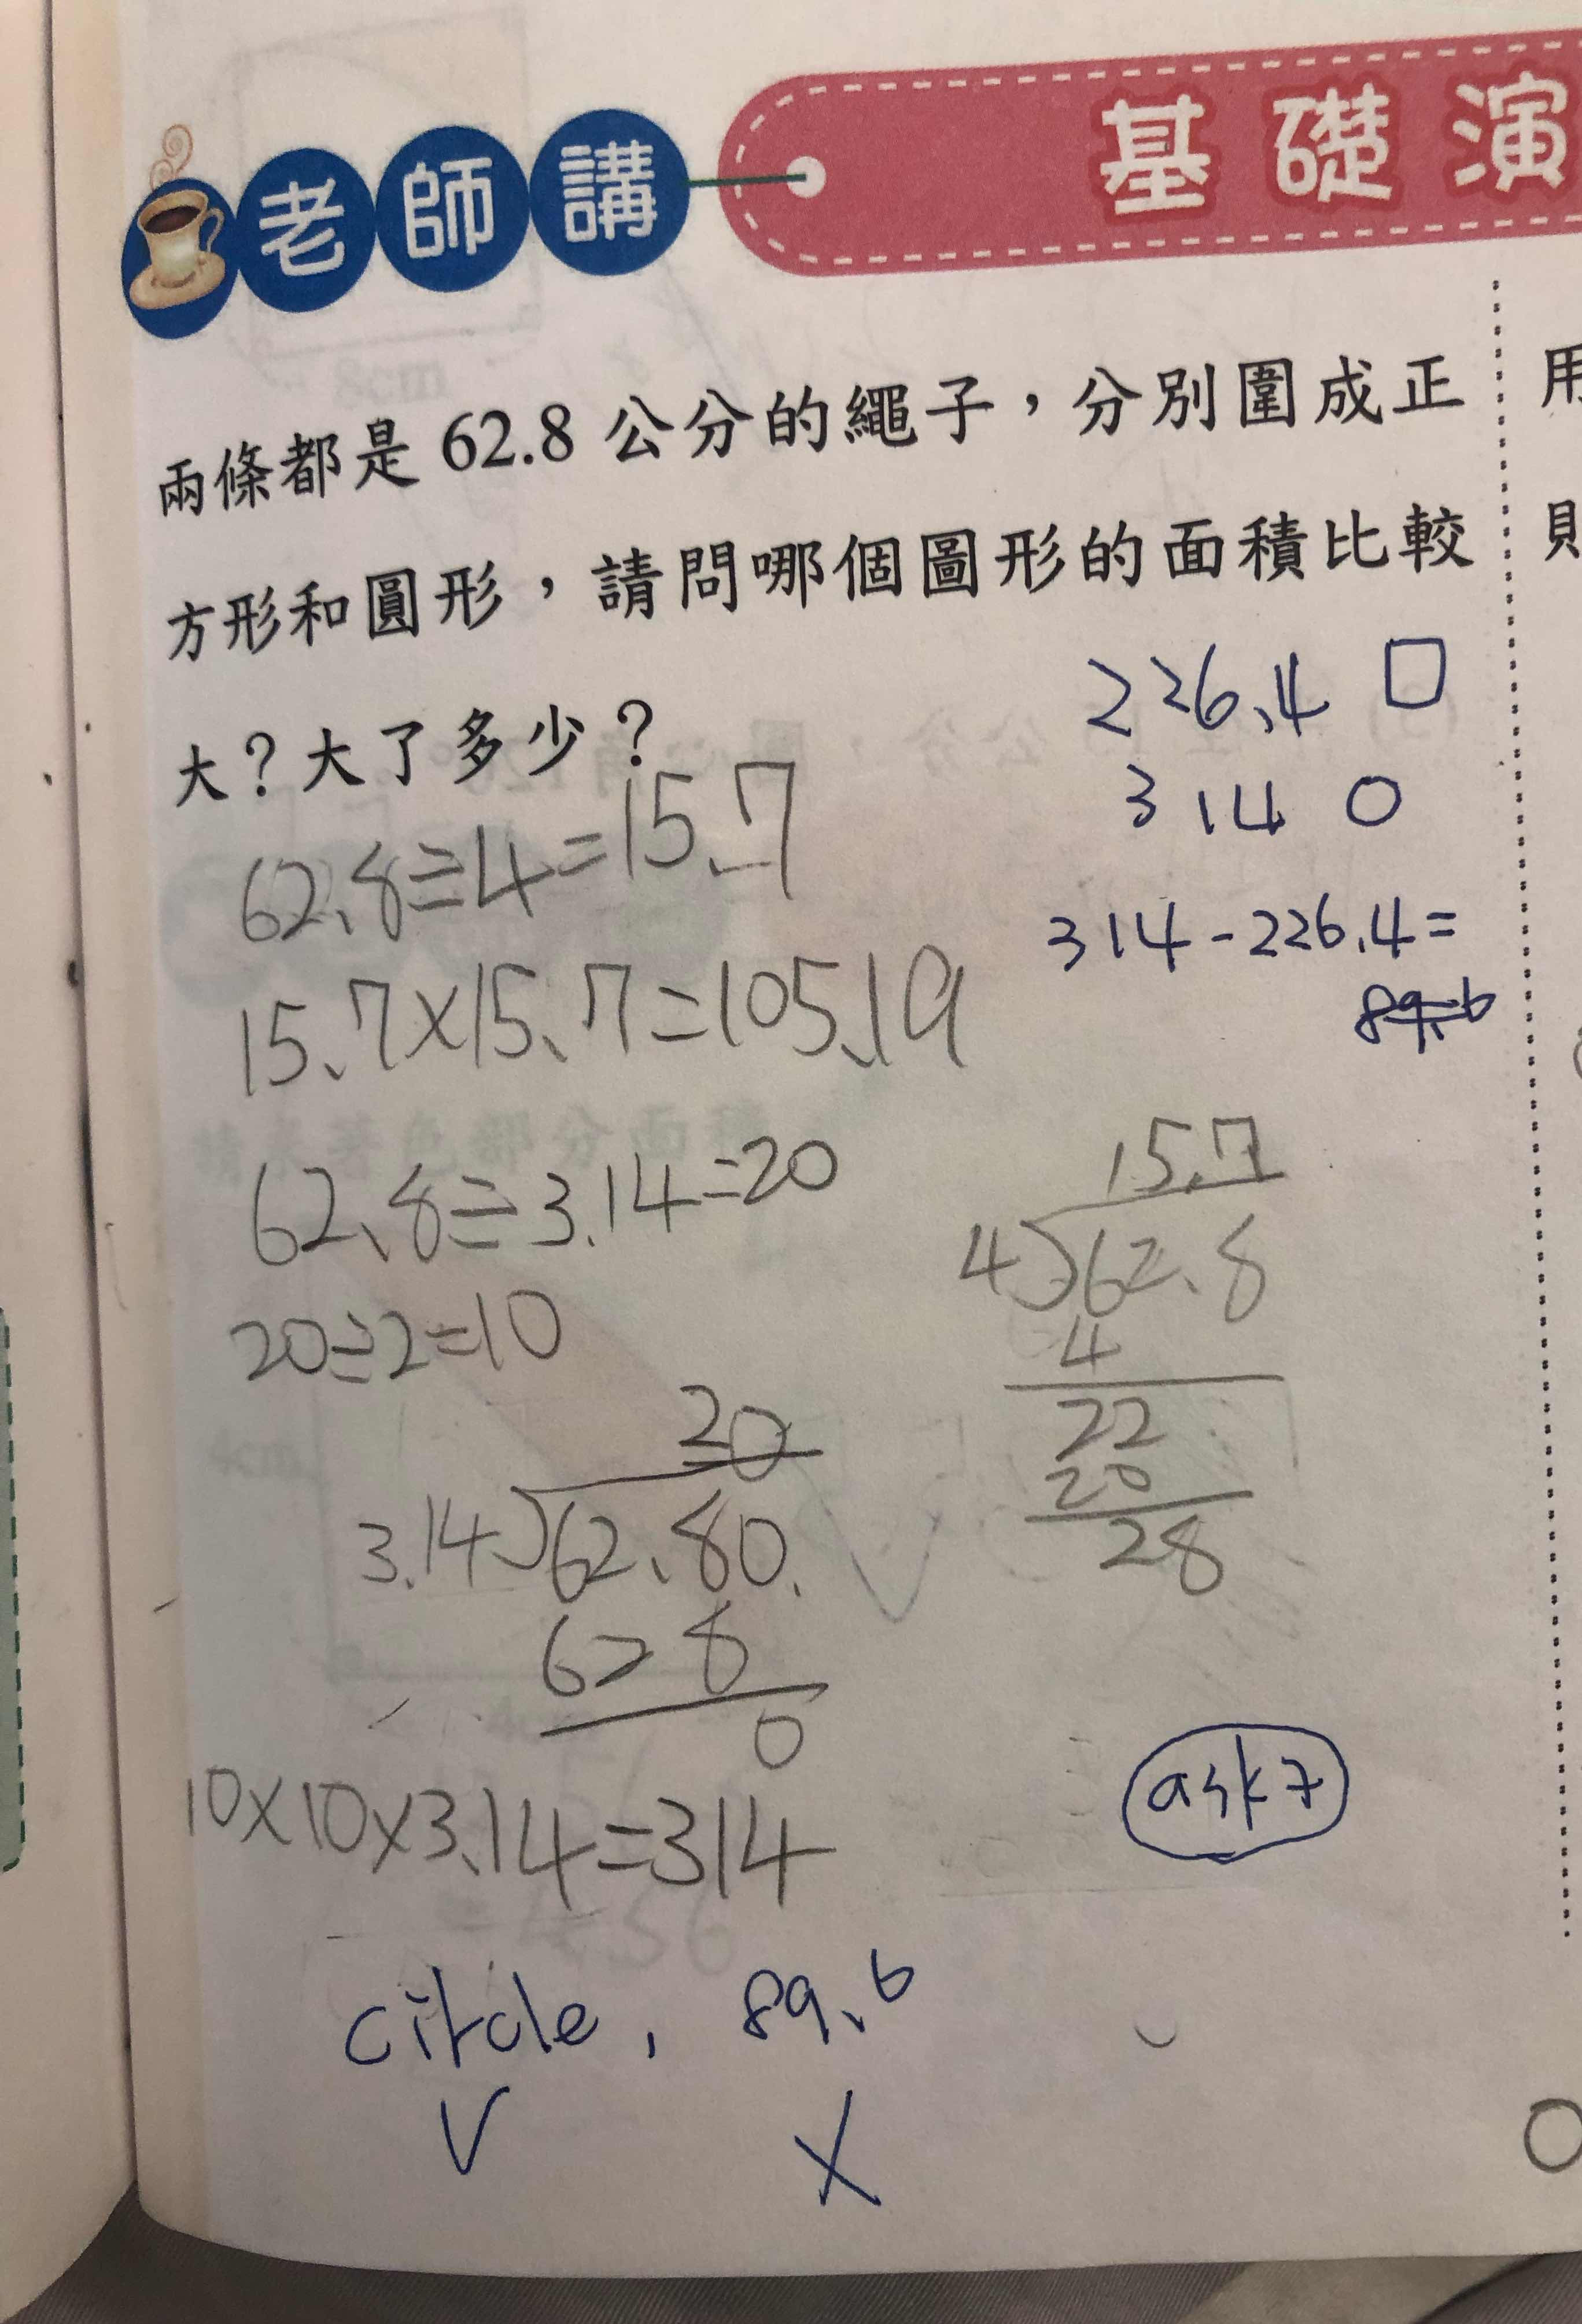 老師講
基礎演
兩條都是 62.8 公分的繩子，分別圍成正
方形和圓形，請問哪個圖形的面積比較
大？大了多少？
226.4 □
314 ○
314-226.4=
89.6
62.8÷4=15.7
15.7×15.7=105.19
62.8÷3.14=20
20÷2=10
15.7
4)62.8
4
22
20
28
20
3.14)62.80.
628
0
10×10×3.14=314
circle, 89.6
V X
用